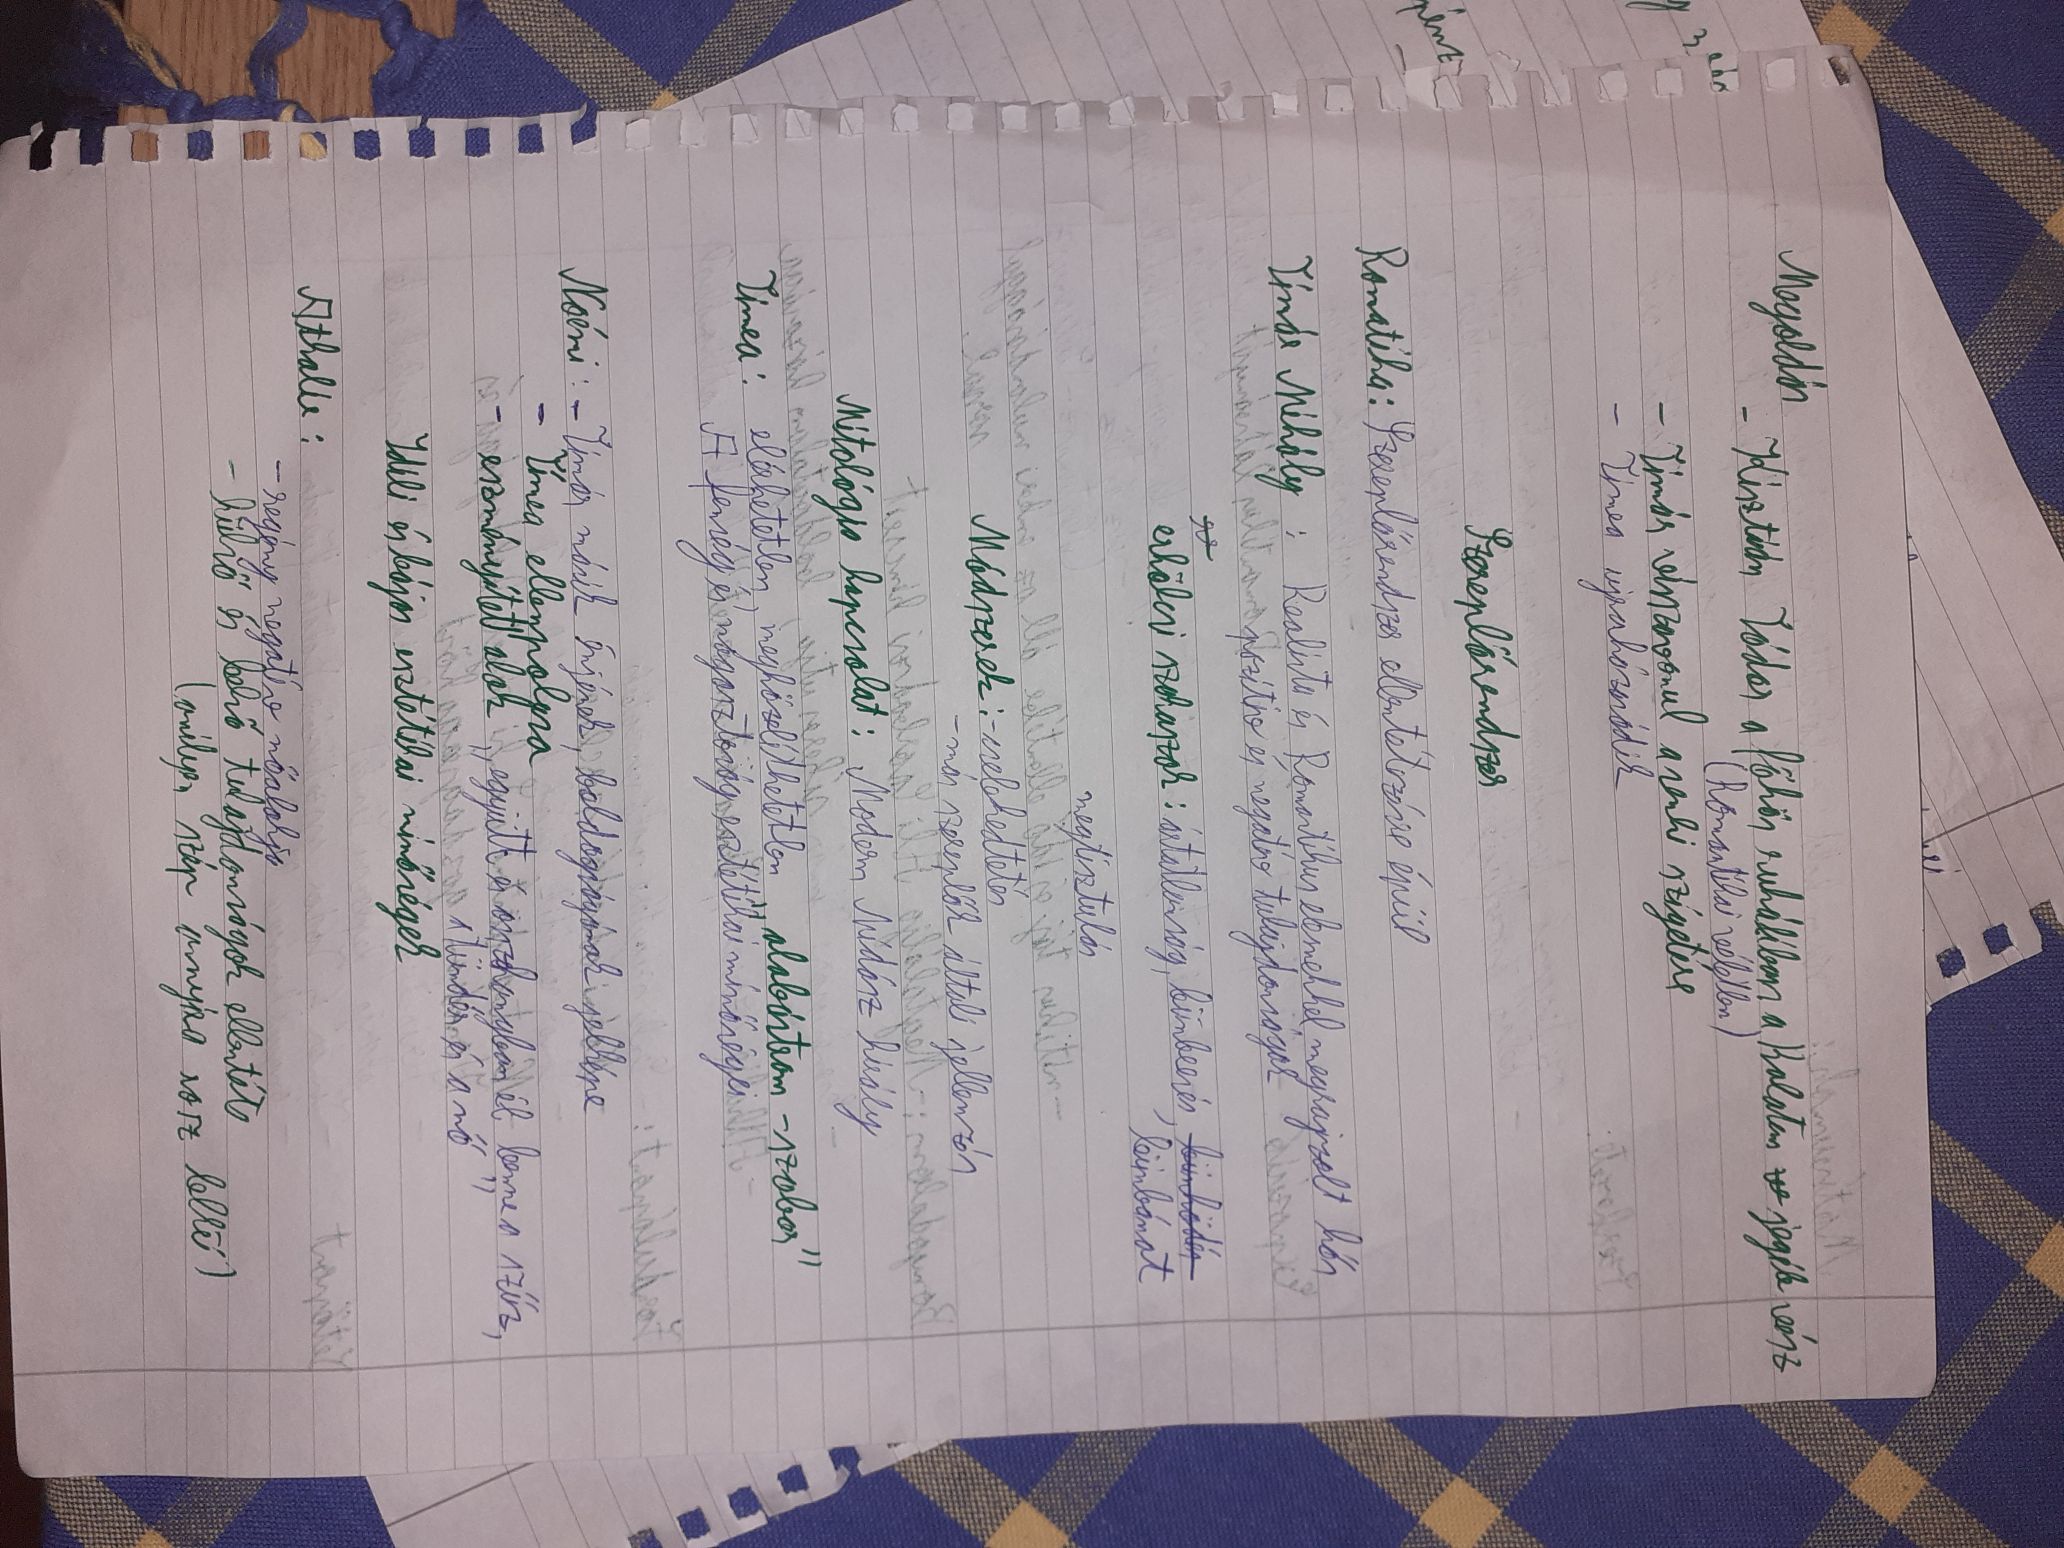 Megoldás
- Krisztián Tódor a főhős ruháiban a Balaton jegébe vész
(Romantikai véletlen)
- Tímár visszavonul a senki szigetére
- Tímea újraházasodik
Szereplőrendszer
Romatika: Szereplőrendszer ellentétezésre épül
Tímár Mihály : Realista és Romantikus elemekkel megrajzolt hős
pozitív és negatív tulajdonságok
erkölcsi szakaszok: ártatlanság, bűnbeesés, bűnhődés
bűnbánat
megtisztulás
Módszerek: -cselekedtetés
-más szereplők általi jellemzés
Mitológia kapcsolat: Modern Midász király
Tímea: elérhetetlen, megközelíthetetlen „alabástrom-szobor"
A fenség és magasztosság esztétikai minőségei
Noémi: - Tímár másik énjének, boldogságának jelképe
- Tímea ellenpólusa
- eszményített alak „együtt és összhangban él benne a szűz,
a tündér és a nő"
Idilli és bájos esztétikai minőségek
Athalie:
- regény negatív nőalakja
- külső és belső tulajdonságok ellentéte
(amilyen szép annyira rossz lelkű)
pénz